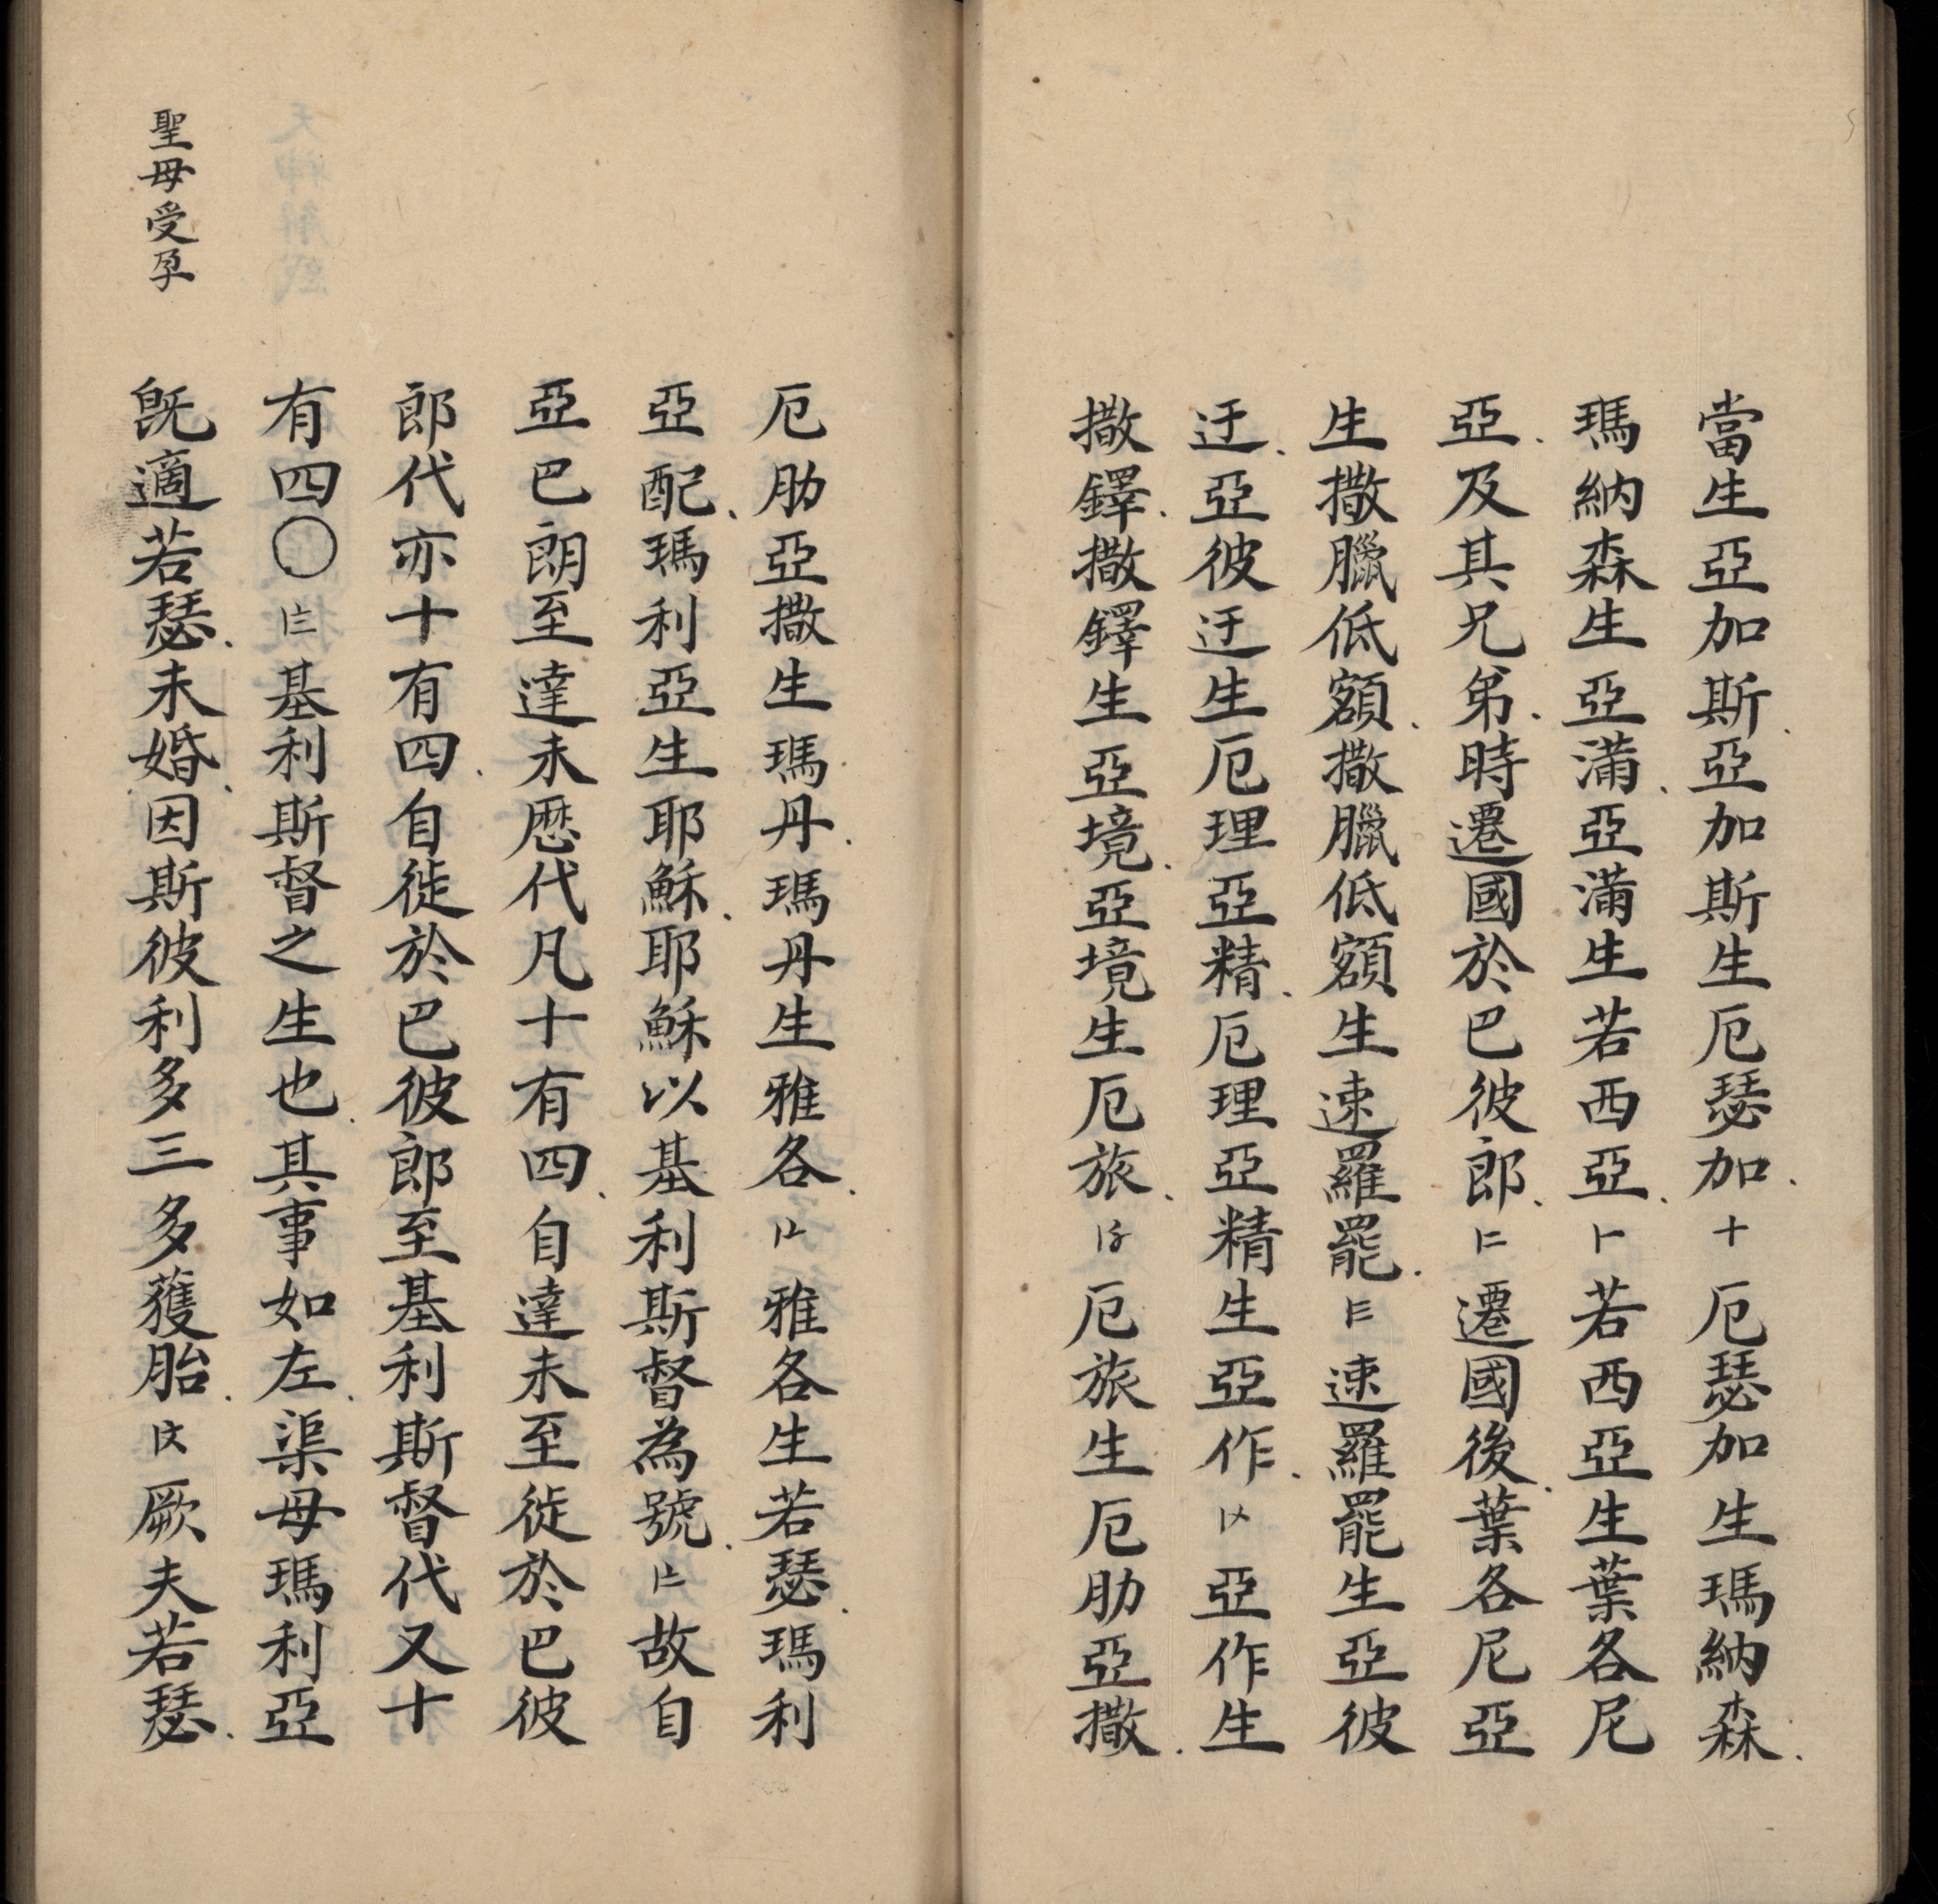 當生亞加斯、亞加斯生厄瑟加、十厄瑟加生瑪納森、
瑪納森生亞滿、亞滿生若西亞、⺊若西亞生葉各尼
亞、及其兄弟、時遷國於巴彼郎、遷國後、葉各尼亞
生撒臘低額、撒臘低額生速羅罷、速羅罷生亞彼
迂、亞彼迂生厄理亞精、厄理亞精生亞作、亞作生
撒鐸、撒鐸生亞境、亞境生厄旅、厄旅生厄肋亞撒、
厄肋亞撒生瑪丹、瑪丹生雅各、雅各生若瑟、瑪利
亞配、瑪利亞生耶穌、耶穌以基利斯督為號、故自
亞巴朗至達未歷代凡十有四、自達未至徙於巴彼
郎代亦十有四、自徙於巴彼郎至基利斯督代又十
有四〇基利斯督之生也、其事如左、渠母瑪利亞
聖母受孕
既適若瑟、未婚、因斯彼利多三多獲胎、厥夫若瑟、